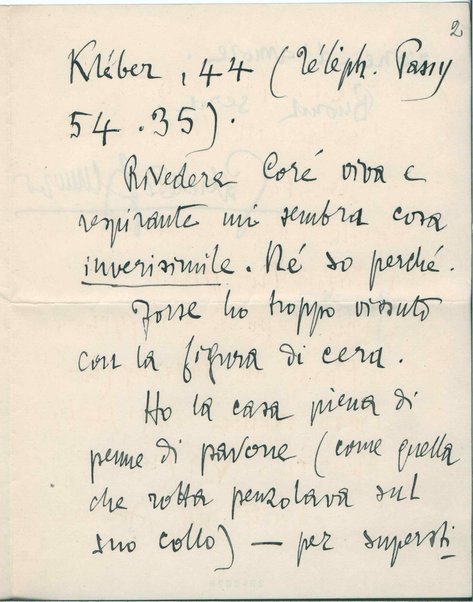 2
Kléber, 44 (Téléph. Passy
54.35).
Rivedere Coré viva e
respirante mi sembra cosa
inverisimile. Né so perché.
Forse ho troppo vissuto
con la figura di cera.
Ho la casa piena di
penne di pavone (come quella
che rotta penzolava sul
suo collo) — per supersti